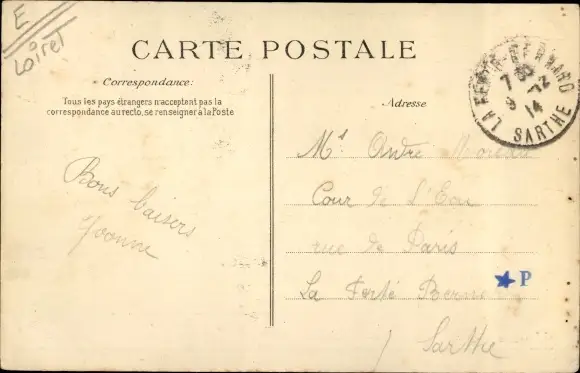 E
Loiret
CARTE POSTALE
Correspondance:
Tous les pays étrangers n'acceptent pas la
correspondance au recto, se renseigner à la Poste
Adresse
LA FERTÉ-BERNARD
7 30
9 - 2
14
SARTHE
Mr André
Cour de L'Eau
rue de Paris
La Ferté Bernard
Sarthe
Bons baisers
Yvonne
P